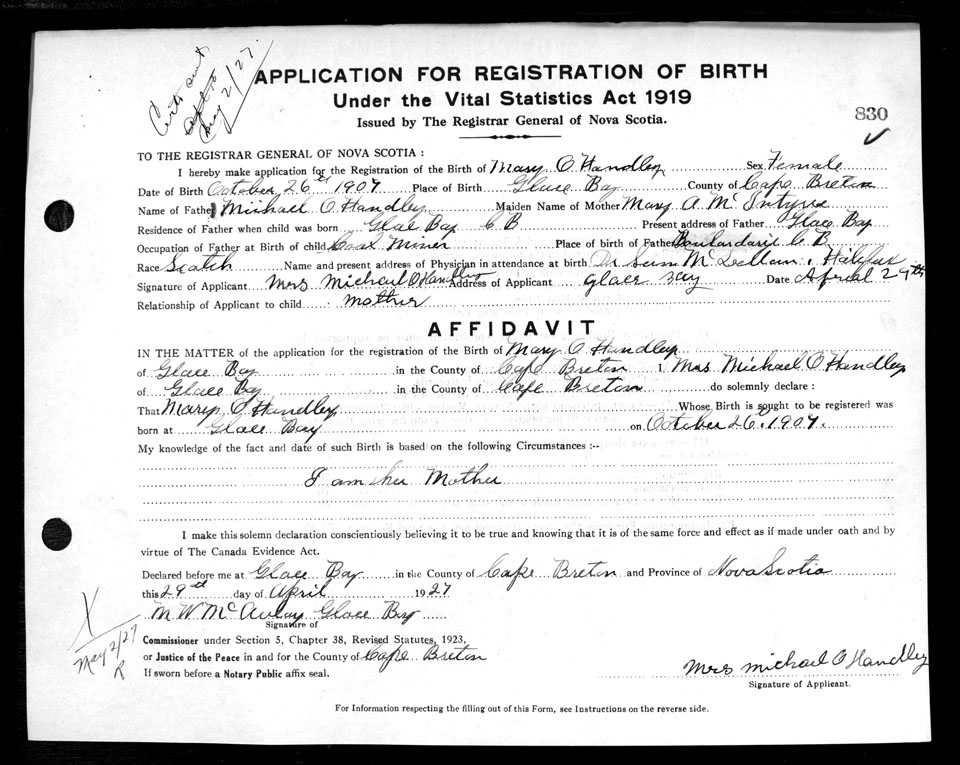 Certs sent
May 2/27.
APPLICATION FOR REGISTRATION OF BIRTH
Under the Vital Statistics Act 1919
Issued by The Registrar General of Nova Scotia.
830
TO THE REGISTRAR GENERAL OF NOVA SCOTIA :
I hereby make application for the Registration of the Birth of Mary O'Handley Sex Female
Date of Birth October 26th 1907 Place of Birth Glace Bay County of Cape Breton
Name of Father Michael O'Handley Maiden Name of Mother Mary A. McIntyre
Residence of Father when child was born Glace Bay C B Present address of Father Glace Bay
Occupation of Father at Birth of child Coal Miner Place of birth of Father Boulardarie C. B.
Race Scotch Name and present address of Physician in attendance at birth Dr. McLellan, Halifax
Signature of Applicant Mrs Michael O'Handley Address of Applicant Glace Bay Date April 29th
Relationship of Applicant to child mother
AFFIDAVIT
IN THE MATTER of the application for the registration of the Birth of Mary O'Handley
of Glace Bay in the County of Cape Breton I, Mrs Michael O'Handley
of Glace Bay in the County of Cape Breton do solemnly declare :
That Mary O'Handley Whose Birth is sought to be registered was
born at Glace Bay on October 26. 1907.
My knowledge of the fact and date of such Birth is based on the following Circumstances :--
I am her Mother
I make this solemn declaration conscientiously believing it to be true and knowing that it is of the same force and effect as if made under oath and by
virtue of The Canada Evidence Act.
Declared before me at Glace Bay in the County of Cape Breton and Province of Nova Scotia
this 29th day of April 1927
M W McAulay Glace Bay
Signature of
Commissioner under Section 5, Chapter 38, Revised Statutes, 1923,
or Justice of the Peace in and for the County of Cape Breton
If sworn before a Notary Public affix seal.
X
May 2/27
R
Mrs Michael O Handley
Signature of Applicant.
For Information respecting the filling out of this Form, see Instructions on the reverse side.